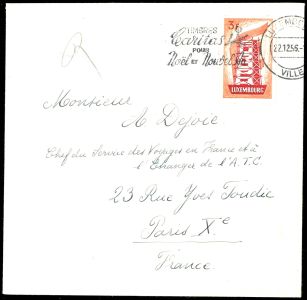 TIMBRES
Caritas
POUR
Noël et Nouvel An
3F
LUXEMBOURG
22.12.56.
VILLE
R
Monsieur
A Dejoie
Chef du Service des Voyages en France et à
l'Etranger de l'A.T.C
23 Rue Yves Toudic
Paris Xe
France